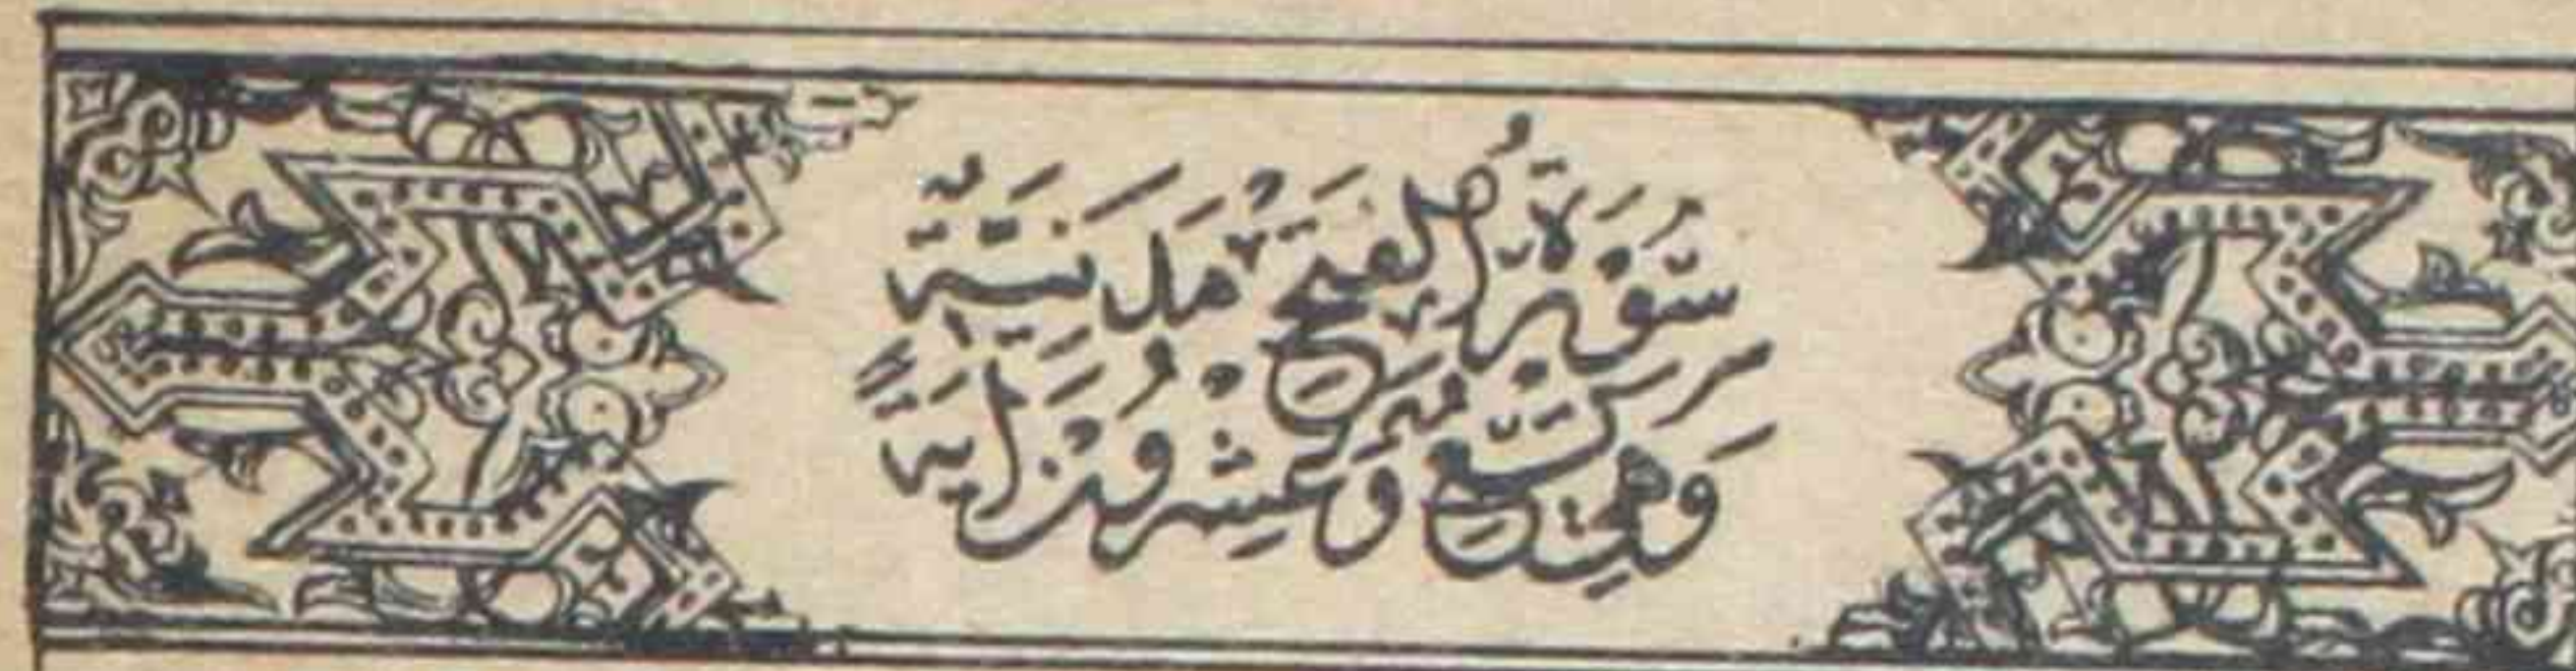 سُوْرَةُ الْفَتْحِ مَدَنِيَّةٌ
وَهِيَ تِسْعٌ وَعِشْرُوْنَ اٰيَةً